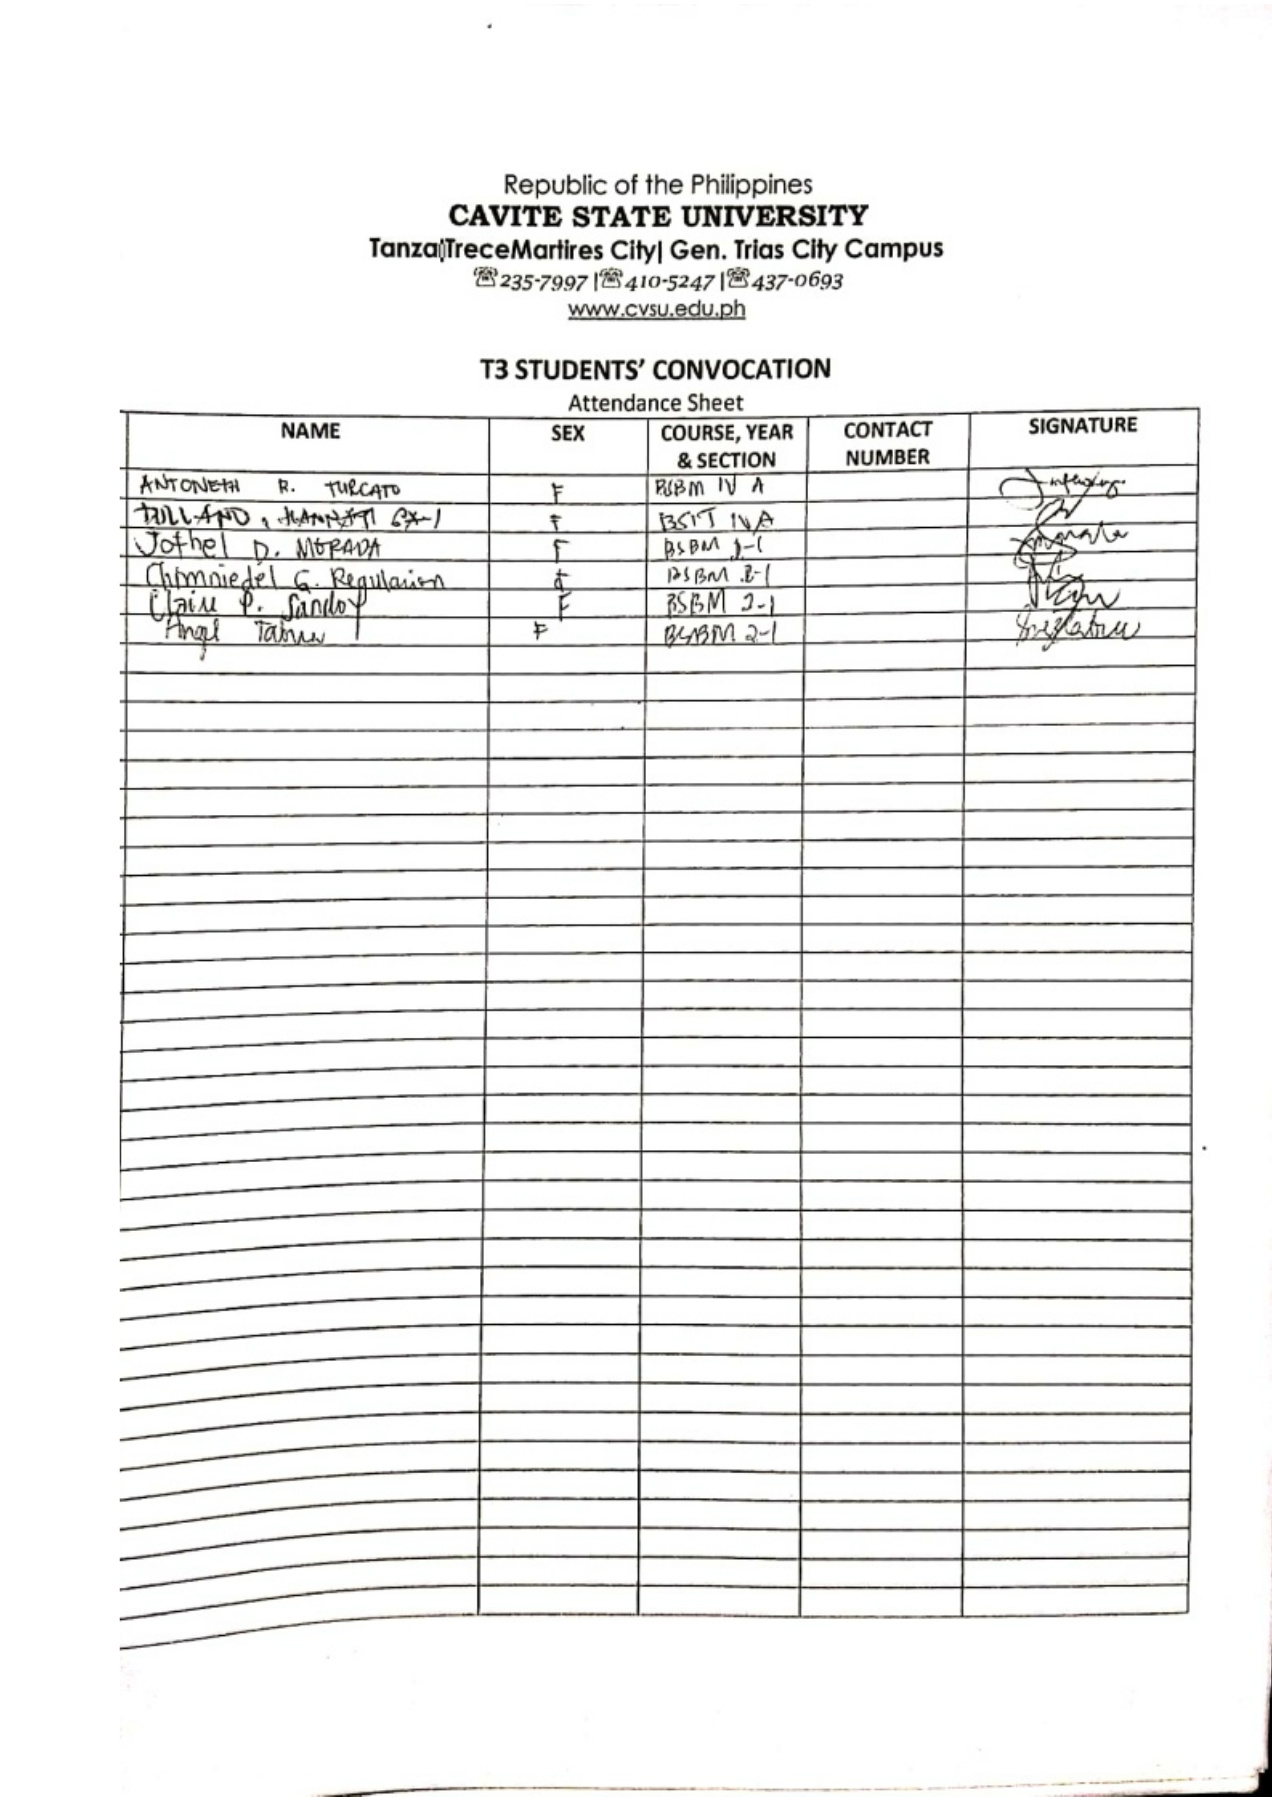 Republic of the Philippines
CAVITE STATE UNIVERSITY
Tanza|TreceMartires City| Gen. Trias City Campus
☏235-7997 |☏410-5247 |☏437-0693
www.cvsu.edu.ph
T3 STUDENTS' CONVOCATION
Attendance Sheet
NAME SEX COURSE, YEAR & SECTION CONTACT NUMBER SIGNATURE
ANTONETH R. TURCATO F BSBM IV A
F BSIT IV A
Jothel D. MORADA F BSBM
Chomniedel G. Regularion F BSBM 2-1
Claire P. Sandoy F BSBM 2-1
Angel F BSBM 2-1